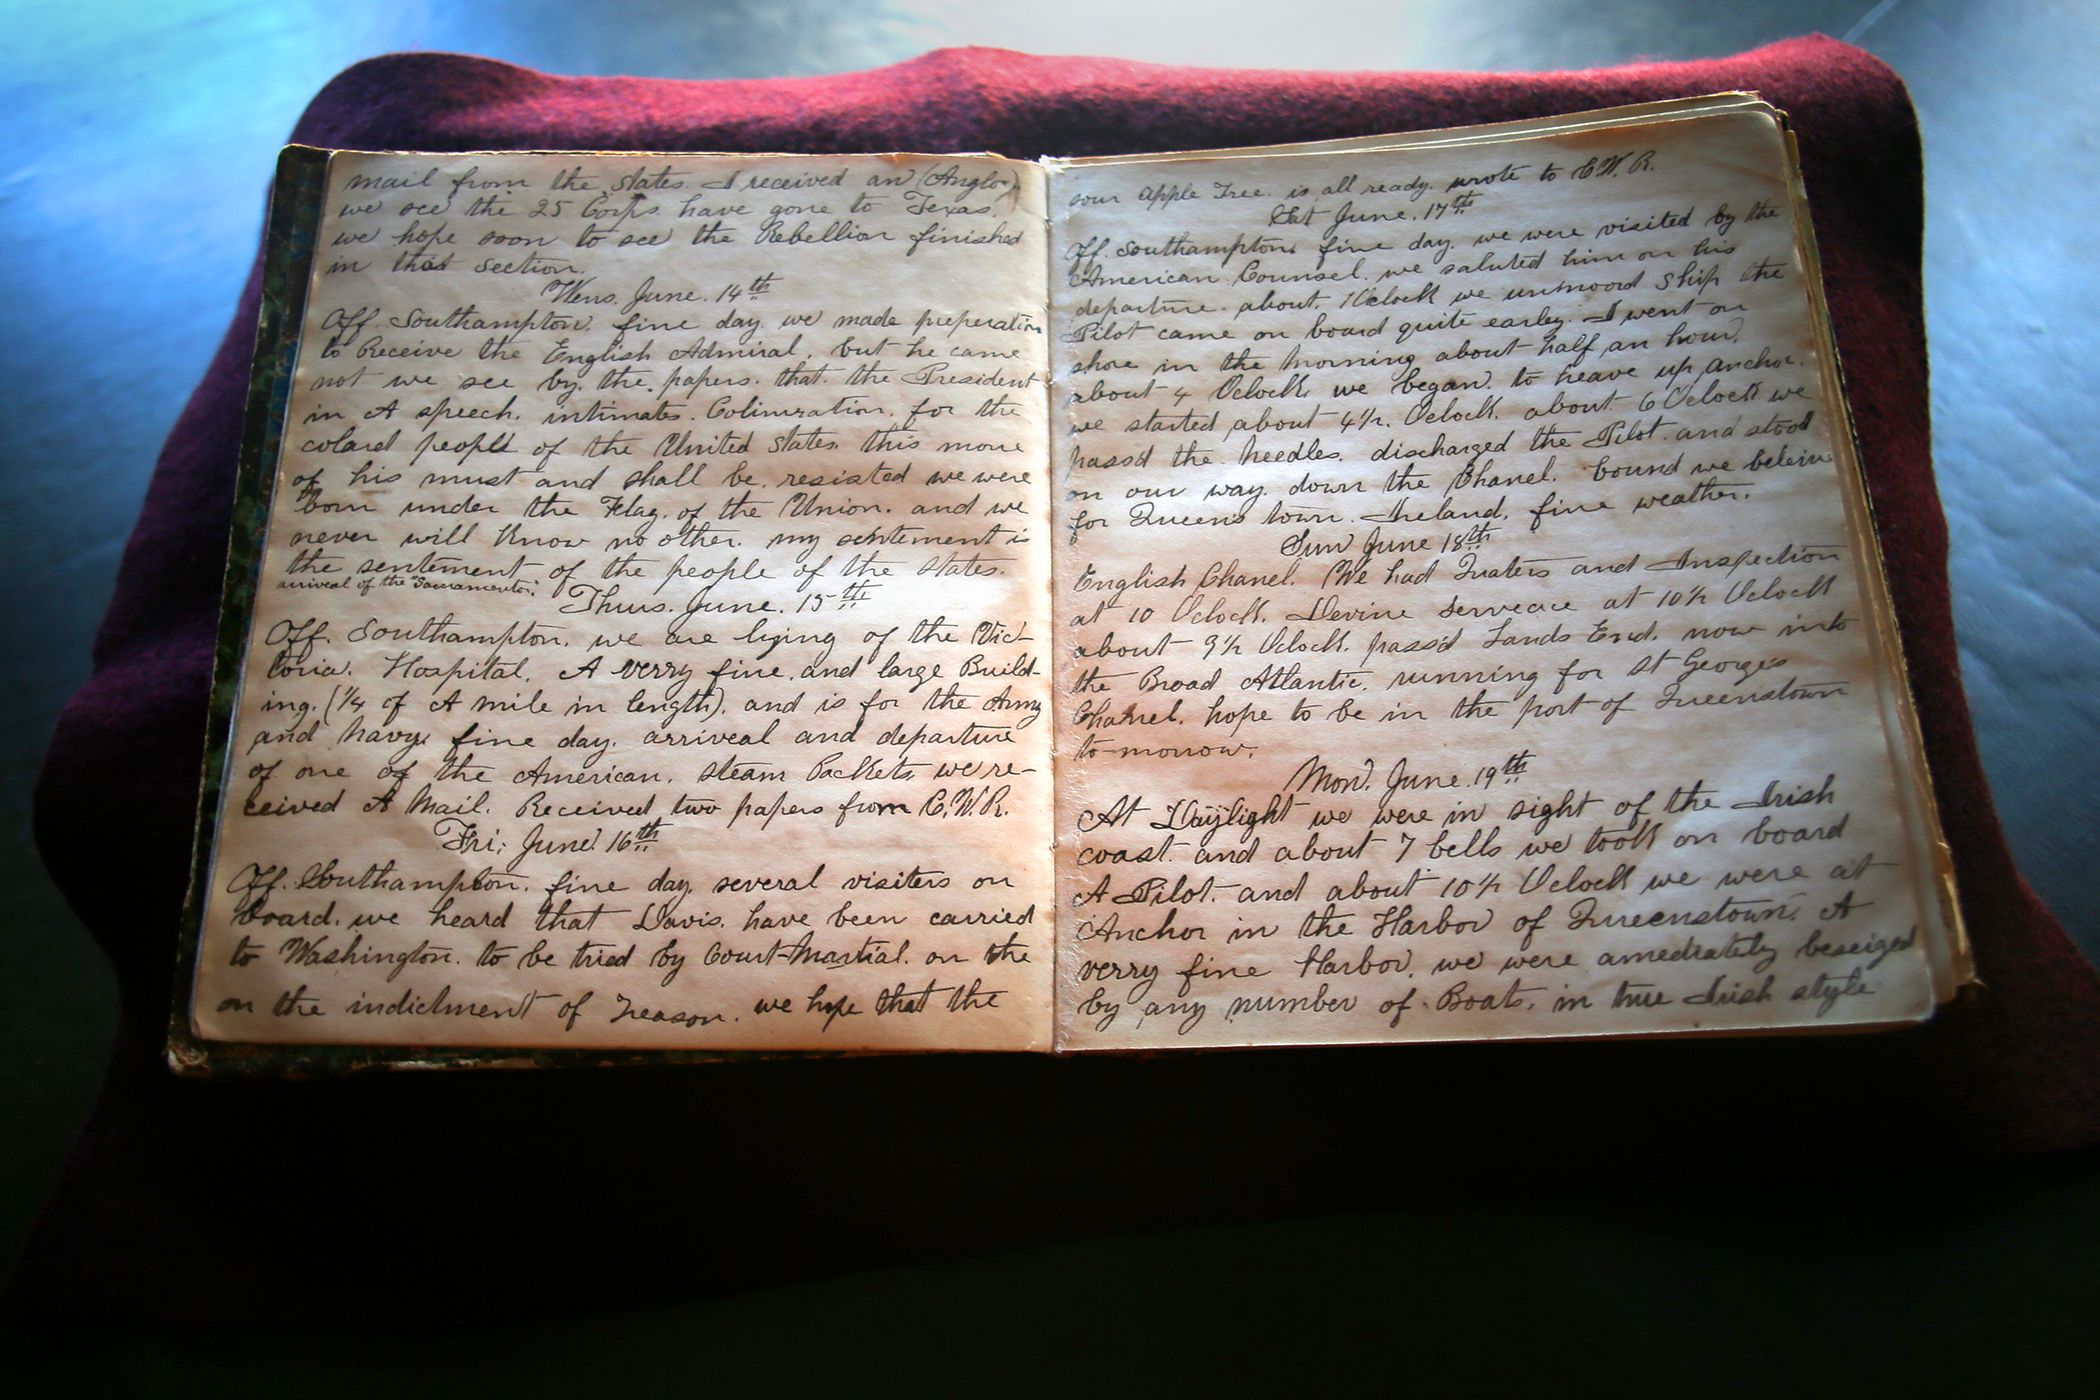 mail from the States. I received an (Anglo.)
we see the 25 Corps. have gone to Texas.
we hope soon to see the Rebellion finished
in that section.
Wens. June. 14th
Off. Southampton. fine day. we made preperation
to Receive the English Admiral, but he came
not we see by. the papers. that. the President
in A speech. intimates. Colinization. for the
colard people of the United States. this move
of his must and shall be. resisted we were
born under the Flag. of the Union. and we
never will know no other. my sentement is
the sentement of the people of the States.
arriveal of the "Sacramento."
Thurs. June. 15th
Off. Southampton. we are lying of the Vic-
toria. Hospital. A verry fine. and large Build-
ing. (1/4 of A mile in length). and is for the Army
and Navy. fine day. arriveal and departure
of one of the American. steam Packets. we re-
ceived A Mail. Received two papers from C.W.R.
Fri; June. 16th
Off. Southampton. fine day. several visiters on
board. we heard that Davis. have been carried
to Washington. to be tried by Court-Martial. on the
on the indictment of Treason. we hope that the
sour apple Tree. is all ready. wrote to C.W.R.
Sat June. 17th
Off. Southampton. fine day. we were visited by the
American Counsel. we saluted him on his
departure. about. 1 Oclock we unmoord Ship the
Pilot came on board quite earley. I went on
shore in the morning about half an hour.
about 4 Oclock we began. to heave up anchor.
we started about 4 1/2. Oclock. about 6 Oclock we
pass'd the Needles. discharged the Pilot. and stood
on our way. down the Chanel. bound we beleive
for Queen's town. Ireland. fine weather.
Sun June 18th
English Chanel. We had Quaters and Inspection
at 10 Oclock. Devine Serveace at 10 1/2 Oclock
about 9 1/2 Oclock. pass'd Lands End. now into
the Broad Atlantic. running for St George's
Chanel. hope to be in the port of Queenstown
to-morrow.
Mon. June. 19th
At Daylight we were in sight of the Irish
coast. and about 7 bells we took on board
A Pilot. and about 10 1/2 Oclock we were at
Anchor in the Harbor of Queenstown. A
verry fine Harbor. we were amediately beseiged
by any number of Boats. in true Irish style